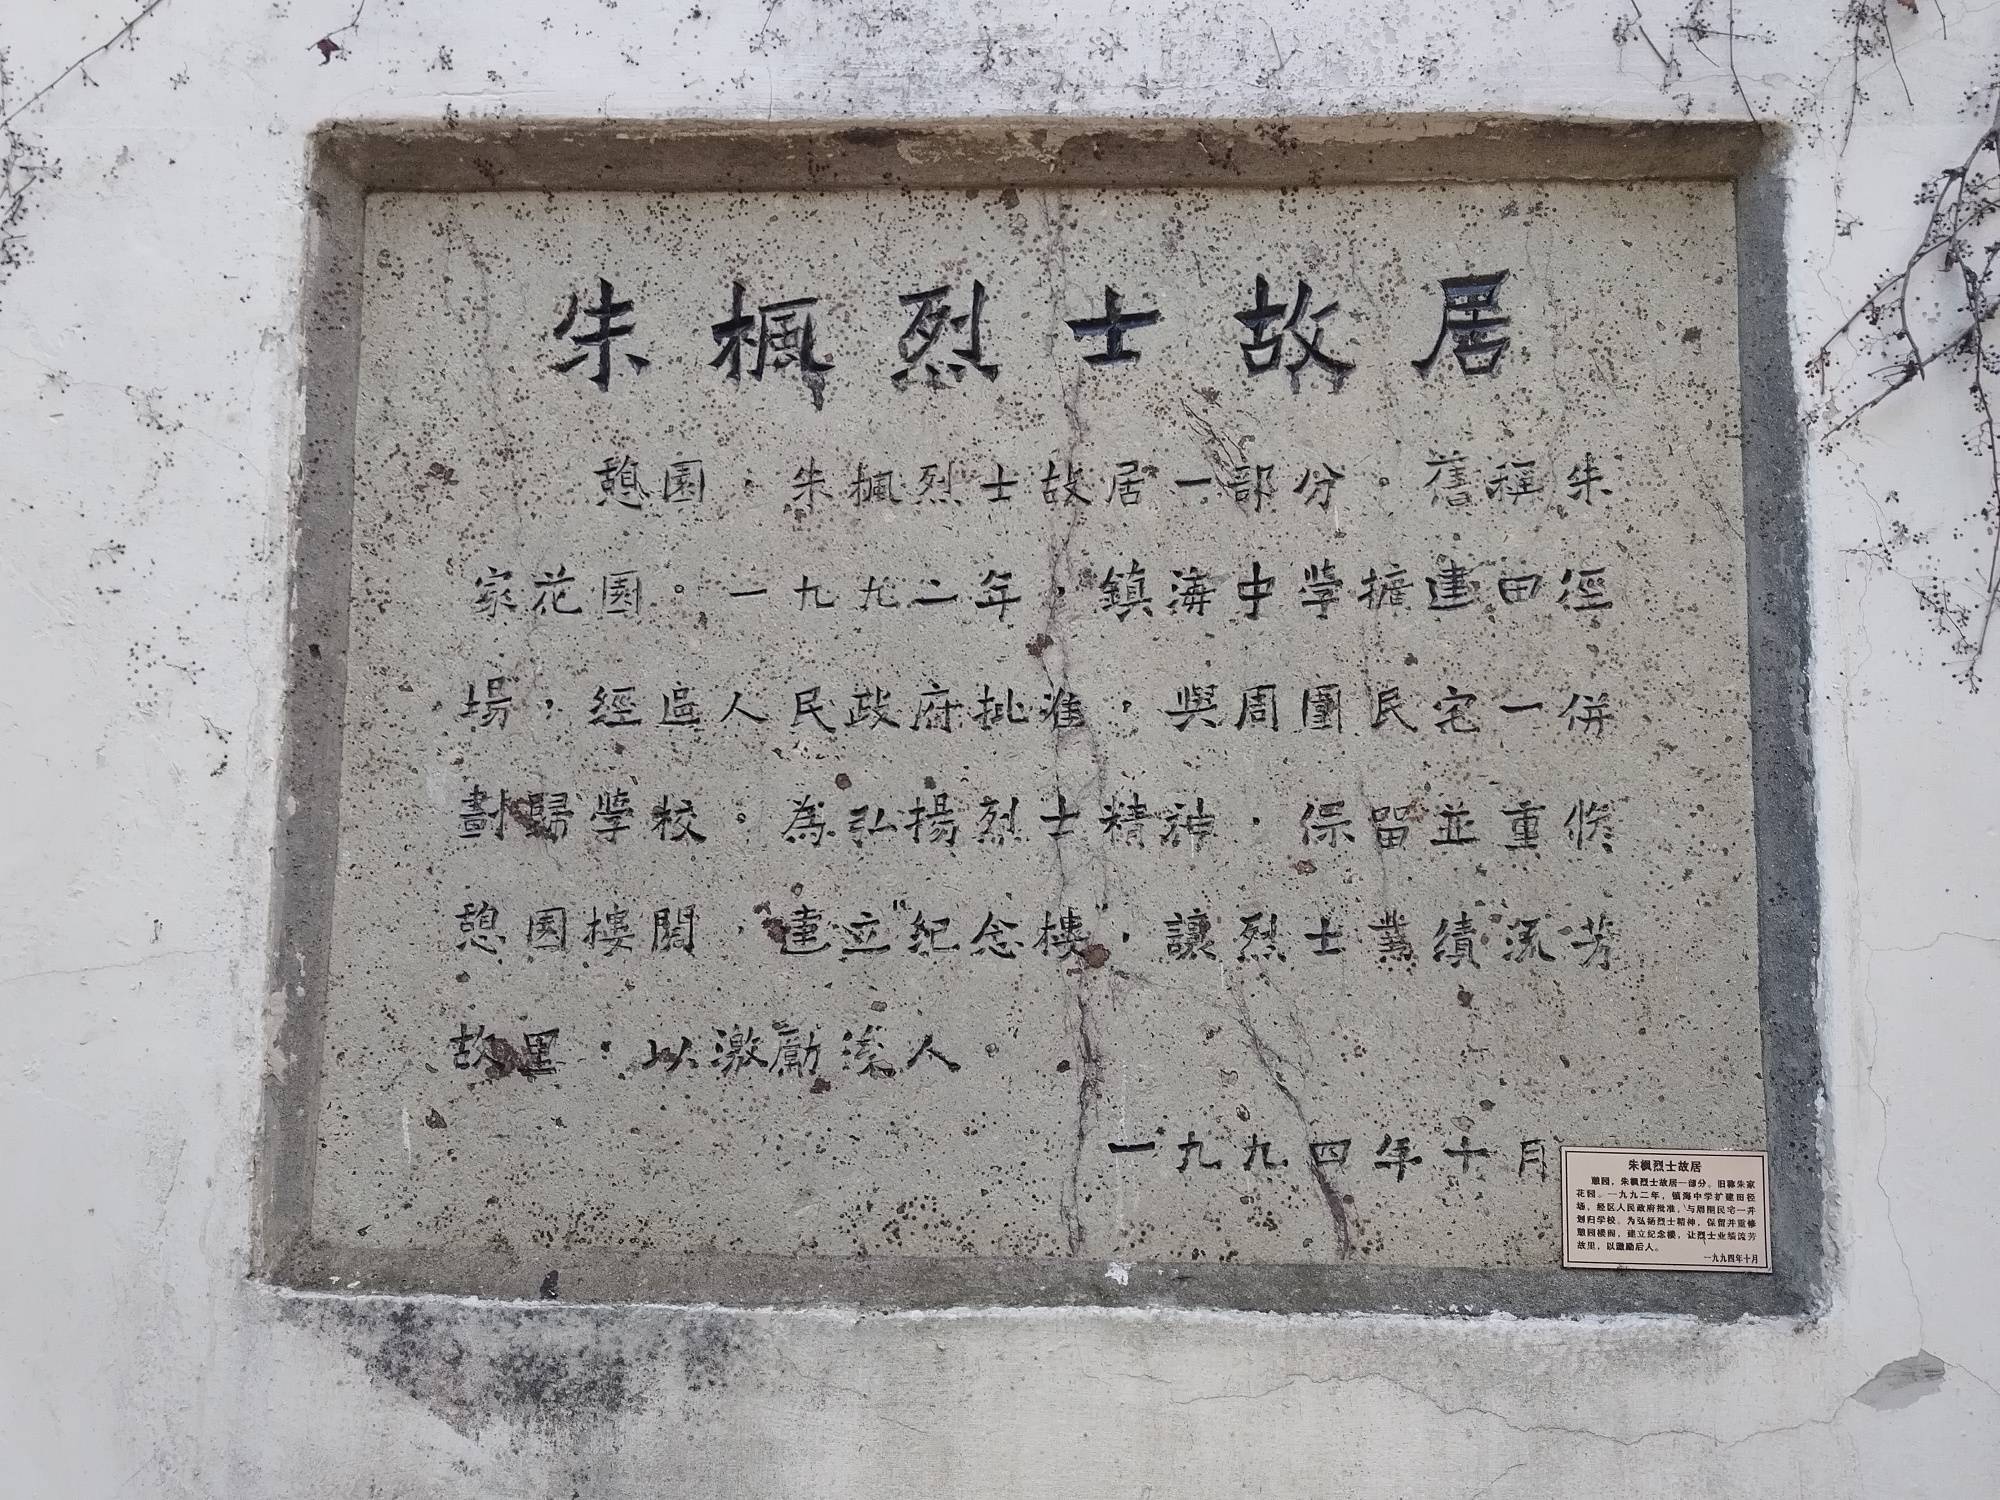 朱楓烈士故居
憩園，朱楓烈士故居一部分。舊稱朱
家花園。一九九二年，鎮海中學擴建田徑
場，經區人民政府批准，與周圍民宅一併
劃歸學校。為弘揚烈士精神，保留並重修
憩園樓閣，建立"紀念樓"，讓烈士業績流芳
故里，以激勵後人。
一九九四年十月
朱枫烈士故居
憩园，朱枫烈士故居一部分。旧称朱家
花园。一九九二年，镇海中学扩建田径
场，经区人民政府批准，与周围民宅一并
划归学校。为弘扬烈士精神，保留并重修
憩园楼阁，建立纪念楼，让烈士业绩流芳
故里，以激励后人。
一九九四年十月